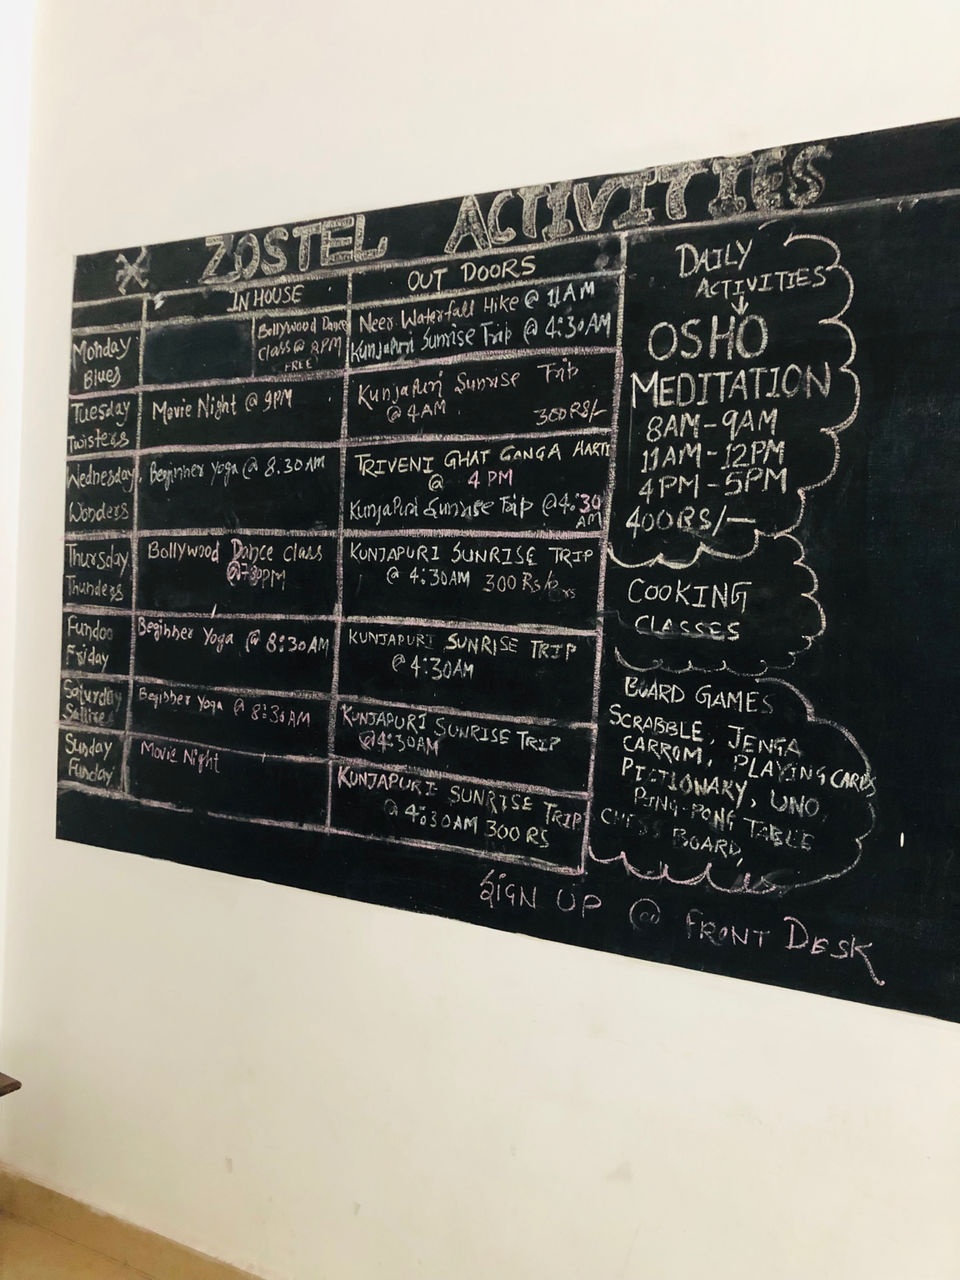 ZOSTEL ACTIVITIES
IN HOUSE
OUT DOORS
Monday
Blues
Bollywood Dance
Class @ 8PM
FREE
Neer Waterfall Hike @ 11AM
Kunjapuri Sunrise Trip @ 4:30AM
Tuesday
Twisters
Movie Night @ 9PM
Kunjapuri Sunrise Trip
@ 4AM
300RS/-
Wednesday
Wonders
Beginner Yoga @ 8.30AM
TRIVENI GHAT GANGA AARTI
@ 4 PM
Kunjapuri Sunrise Trip @4:30
AM
Thursday
Thunders
Bollywood Dance class
@730PM
KUNJAPURI SUNRISE TRIP
@ 4:30AM 300 Rs/
Fundoo
Friday
Beginner Yoga @ 8:30AM
KUNJAPURI SUNRISE TRIP
@ 4:30AM
Saturday
Beginner Yoga @ 8:30AM
KUNJAPURI SUNRISE TRIP
@4:30AM
Sunday
Funday
Movie Night
KUNJAPURI SUNRISE TRIP
@ 4:30AM 300 RS
DAILY
ACTIVITIES
↓
OSHO
MEDITATION
8AM-9AM
11AM-12PM
4PM-5PM
400RS/-
COOKING
CLASSES
BOARD GAMES
SCRABBLE, JENGA
CARROM, PLAYING CARDS
PICTIONARY, UNO
PING-PONG TABLE
CHESS BOARD,
SIGN UP @ FRONT DESK